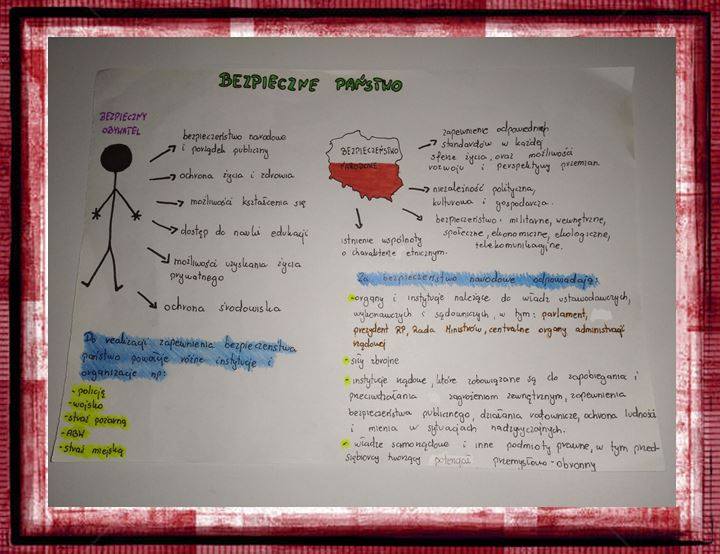 BEZPIECZNE PAŃSTWO
BEZPIECZNY
OBYWATEL
bezpieczeństwo narodowe
i porządek publiczny
ochrona życia i zdrowia
możliwości kształcenia się
dostęp do nauki edukacji
możliwości uzyskania życia
prywatnego
ochrona środowiska
Do realizacji zapewnienia bezpieczeństwa
państwo powołuje różne instytucje i
organizacje np:
- policję
- wojsko
- straż pożarną
- ABW
- straż miejską
BEZPIECZEŃSTWO
NARODOWE
zapewnienie odpowiednich
standardów w każdej
sferze życia, oraz możliwości
rozwoju i perspektywy przemian.
niezależność polityczna,
kulturowa i gospodarcza.
bezpieczeństwo: militarne, wewnętrzne,
społeczne, ekonomiczne, ekologiczne,
telekomunikacyjne.
istnienie wspólnoty
o charakterze etnicznym.
Za bezpieczeństwo narodowe odpowiadają:
- organy i instytucje należące do władz ustawodawczych,
wykonawczych i sądowniczych, w tym: parlament,
prezydent RP, Rada Ministrów, centralne organy administracji
rządowej
- siły zbrojne
- instytucje rządowe, które zobowiązane są do zapobiegania i
przeciwdziałania zagrożeniom zewnętrznym, zapewnienia
bezpieczeństwa publicznego, działania ratownicze, ochrona ludności
i mienia w sytuacjach nadzwyczajnych.
- władze samorządowe i inne podmioty prawne, w tym przed-
siębiorcy tworzący potencjał przemysłowo-obronny